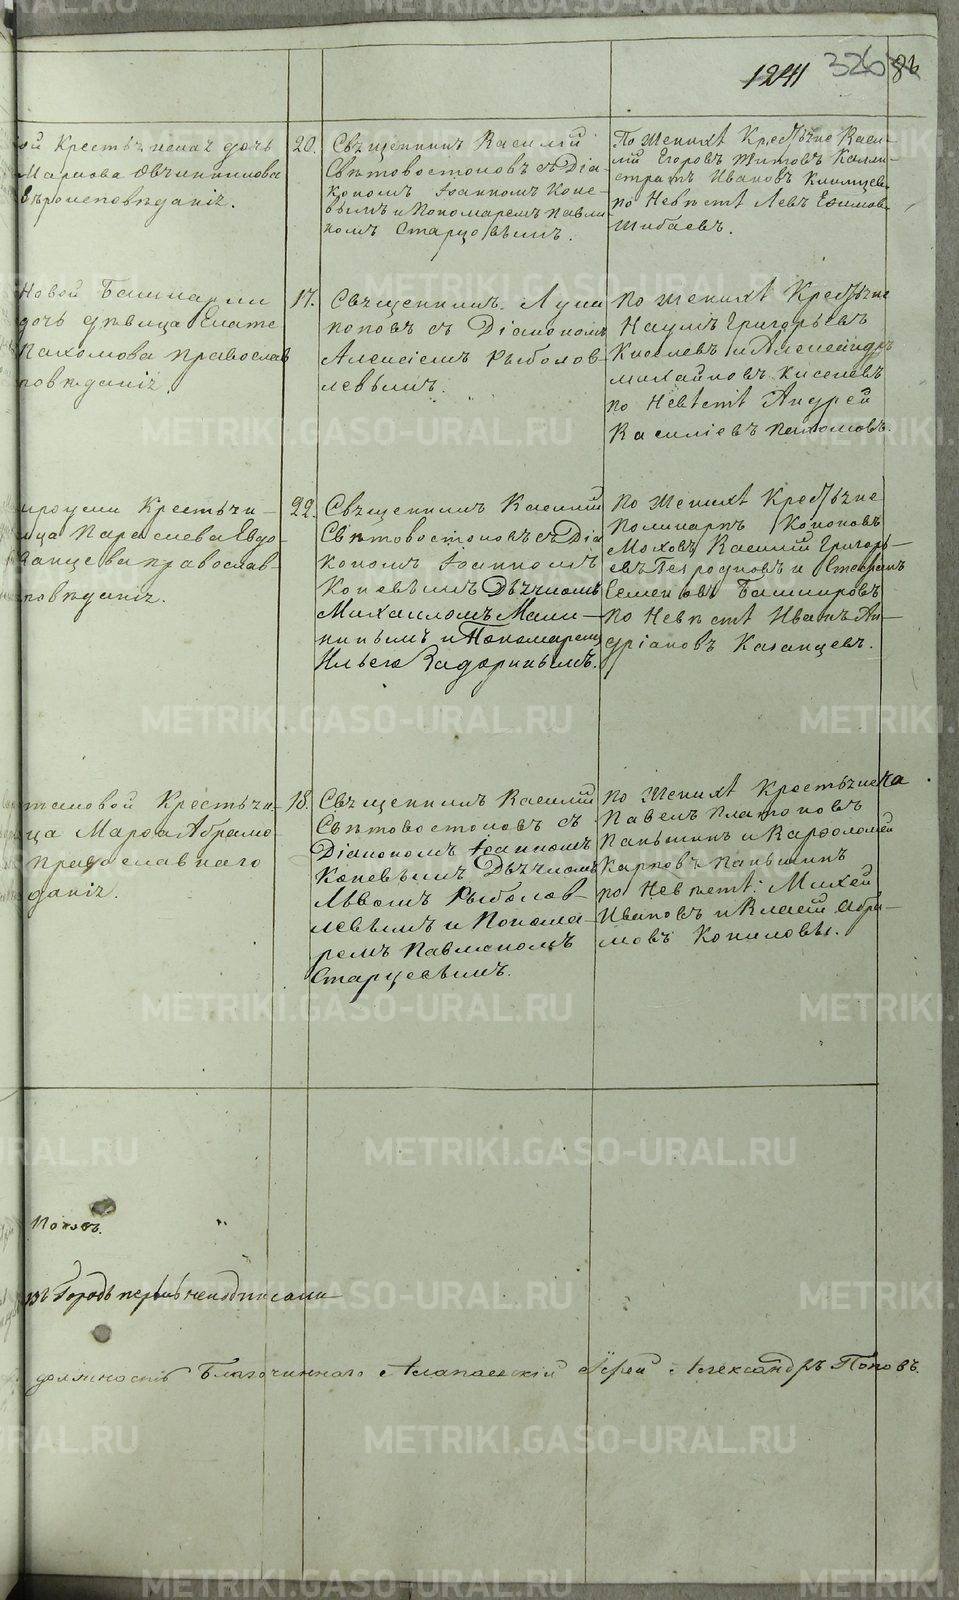 1241 326 86
ой Крестьянская дочь
Маркова Овчинникова
вѣроисповѣданія.
20.
Священникъ Василий
Свѣтовостоковъ съ Діа-
кономъ Іоанномъ Коне-
вымъ и Пономаремъ Павли
номъ Старцовымъ.
По Женихѣ Крестьяне Васи-
лій Егоровъ Житовъ Калли-
стратъ Ивановъ
по Невѣстѣ Левъ Ефимовъ
Шибаевъ.
Новой Башкарки
дочь дѣвица Екате
Пахомова православ
повѣданія
17.
Священникъ Лука
Поповъ съ Діакономъ
Алексіемъ Рыболов
левымъ.
По Женихѣ Крестьяне
Наумъ Григорьевъ
Киселевъ и Александръ
Михайловъ Киселевъ
по Невѣстѣ Андрей
Василіевъ Пахомовъ.
Крестьян-
ица Параскева Евдо-
Занцева православ-
повѣданія.
22.
Священникъ Василий
Свѣтовостоковъ съ Діа
кономъ Іоанномъ
Коневымъ Дьячкомъ
Михаиломъ Мали-
нинымъ и Пономаремъ
Ильею Задоринымъ.
По Женихѣ Крестьяне
Поликарпъ Кононовъ
Моховъ Василий Григорь-
евъ и Стефанъ
Семеновъ Башкировъ
по Невѣстѣ Иванъ Ан-
дріановъ Казанцевъ.
таловой Крестьян-
ца Марфа Абрамо-
Православнаго
данія.
18.
Священникъ Василий
Свѣтовостоковъ съ
Діакономъ Іоанномъ
Коневымъ Дьячкомъ
Львомъ Рыболов-
левымъ и Понома-
ремъ Павлиномъ
Старцевымъ.
По Женихѣ Крестьяне
Павелъ Платоновъ
Паньшинъ и Варфоломей
Карповъ Паньшинъ
по Невѣстѣ: Михей
Ивановъ и Власій Абра-
мовъ Копыловы.
Поповъ.
въ Городѣ
должность Благочиннаго Алапаевскій Іерей Александръ Поповъ.
METRIKI.GASO-URAL.RU